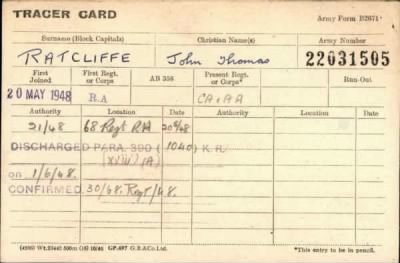 TRACER CARD
Army Form B2671*
Surname (Block Capitals) Christian Name(s) Army Number
RATCLIFFE John Thomas 22031505
First Joined First Regt. or Corps* AB 358 Present Regt. or Corps* Run-Out
20 MAY 1948 R.A
Authority Location Date Authority Location Date
21/48 68 Regt RA
DISCHARGED PARA. 390 (1040) K.R.
(XVIII) (A)
on 1/6/48.
CONFIRMED 30/48. Regt/48.
G.B.&Co.Ltd. *This entry to be in pencil.